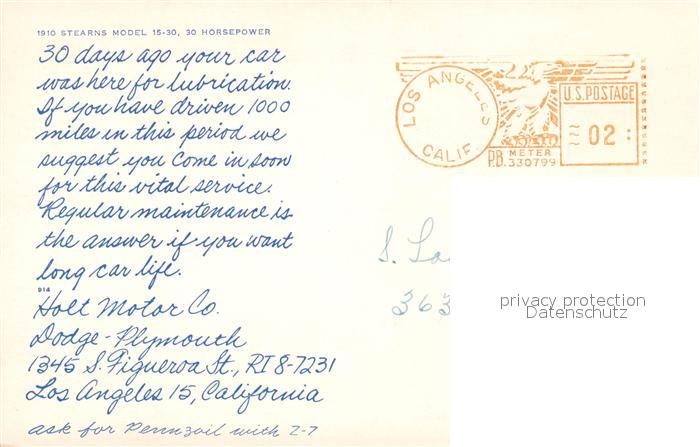 1910 STEARNS MODEL 15-30, 30 HORSEPOWER
30 days ago your car
was here for lubrication.
If you have driven 1000
miles in this period we
suggest you come in soon
for this vital service.
Regular maintenance is
the answer if you want
long car life.
914
Holt Motor Co.
Dodge-Plymouth
1345 S. Figueroa St., RI 8-7231
Los Angeles 15, California
ask for Pennzoil with Z-7
LOS ANGELES
CALIF.
U.S. POSTAGE
02
P.B. METER
330799
S.
363
privacy protection
Datenschutz